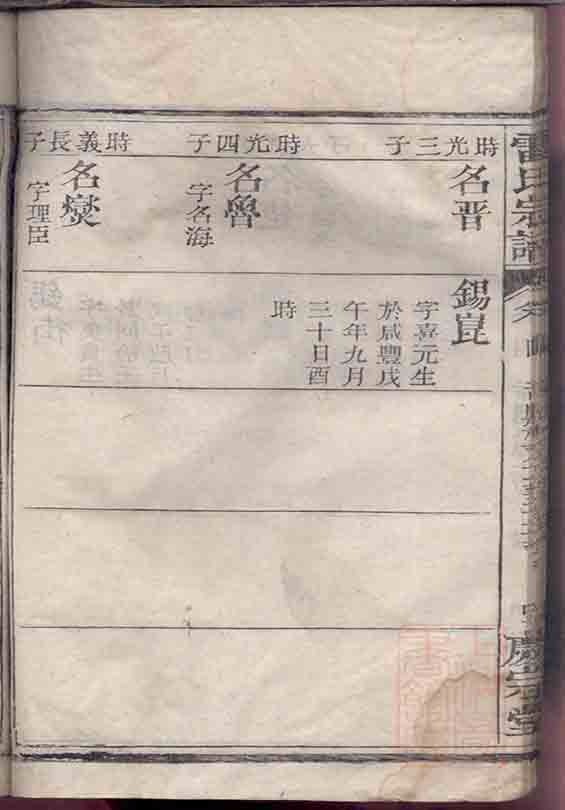 雷氏宗譜
慶宗堂
時光三子
名晋
錫崑
字喜元生
於咸豐戊
午年九月
三十日酉
時
時光四子
名魯
字名海
時義長子
名燮
字理臣